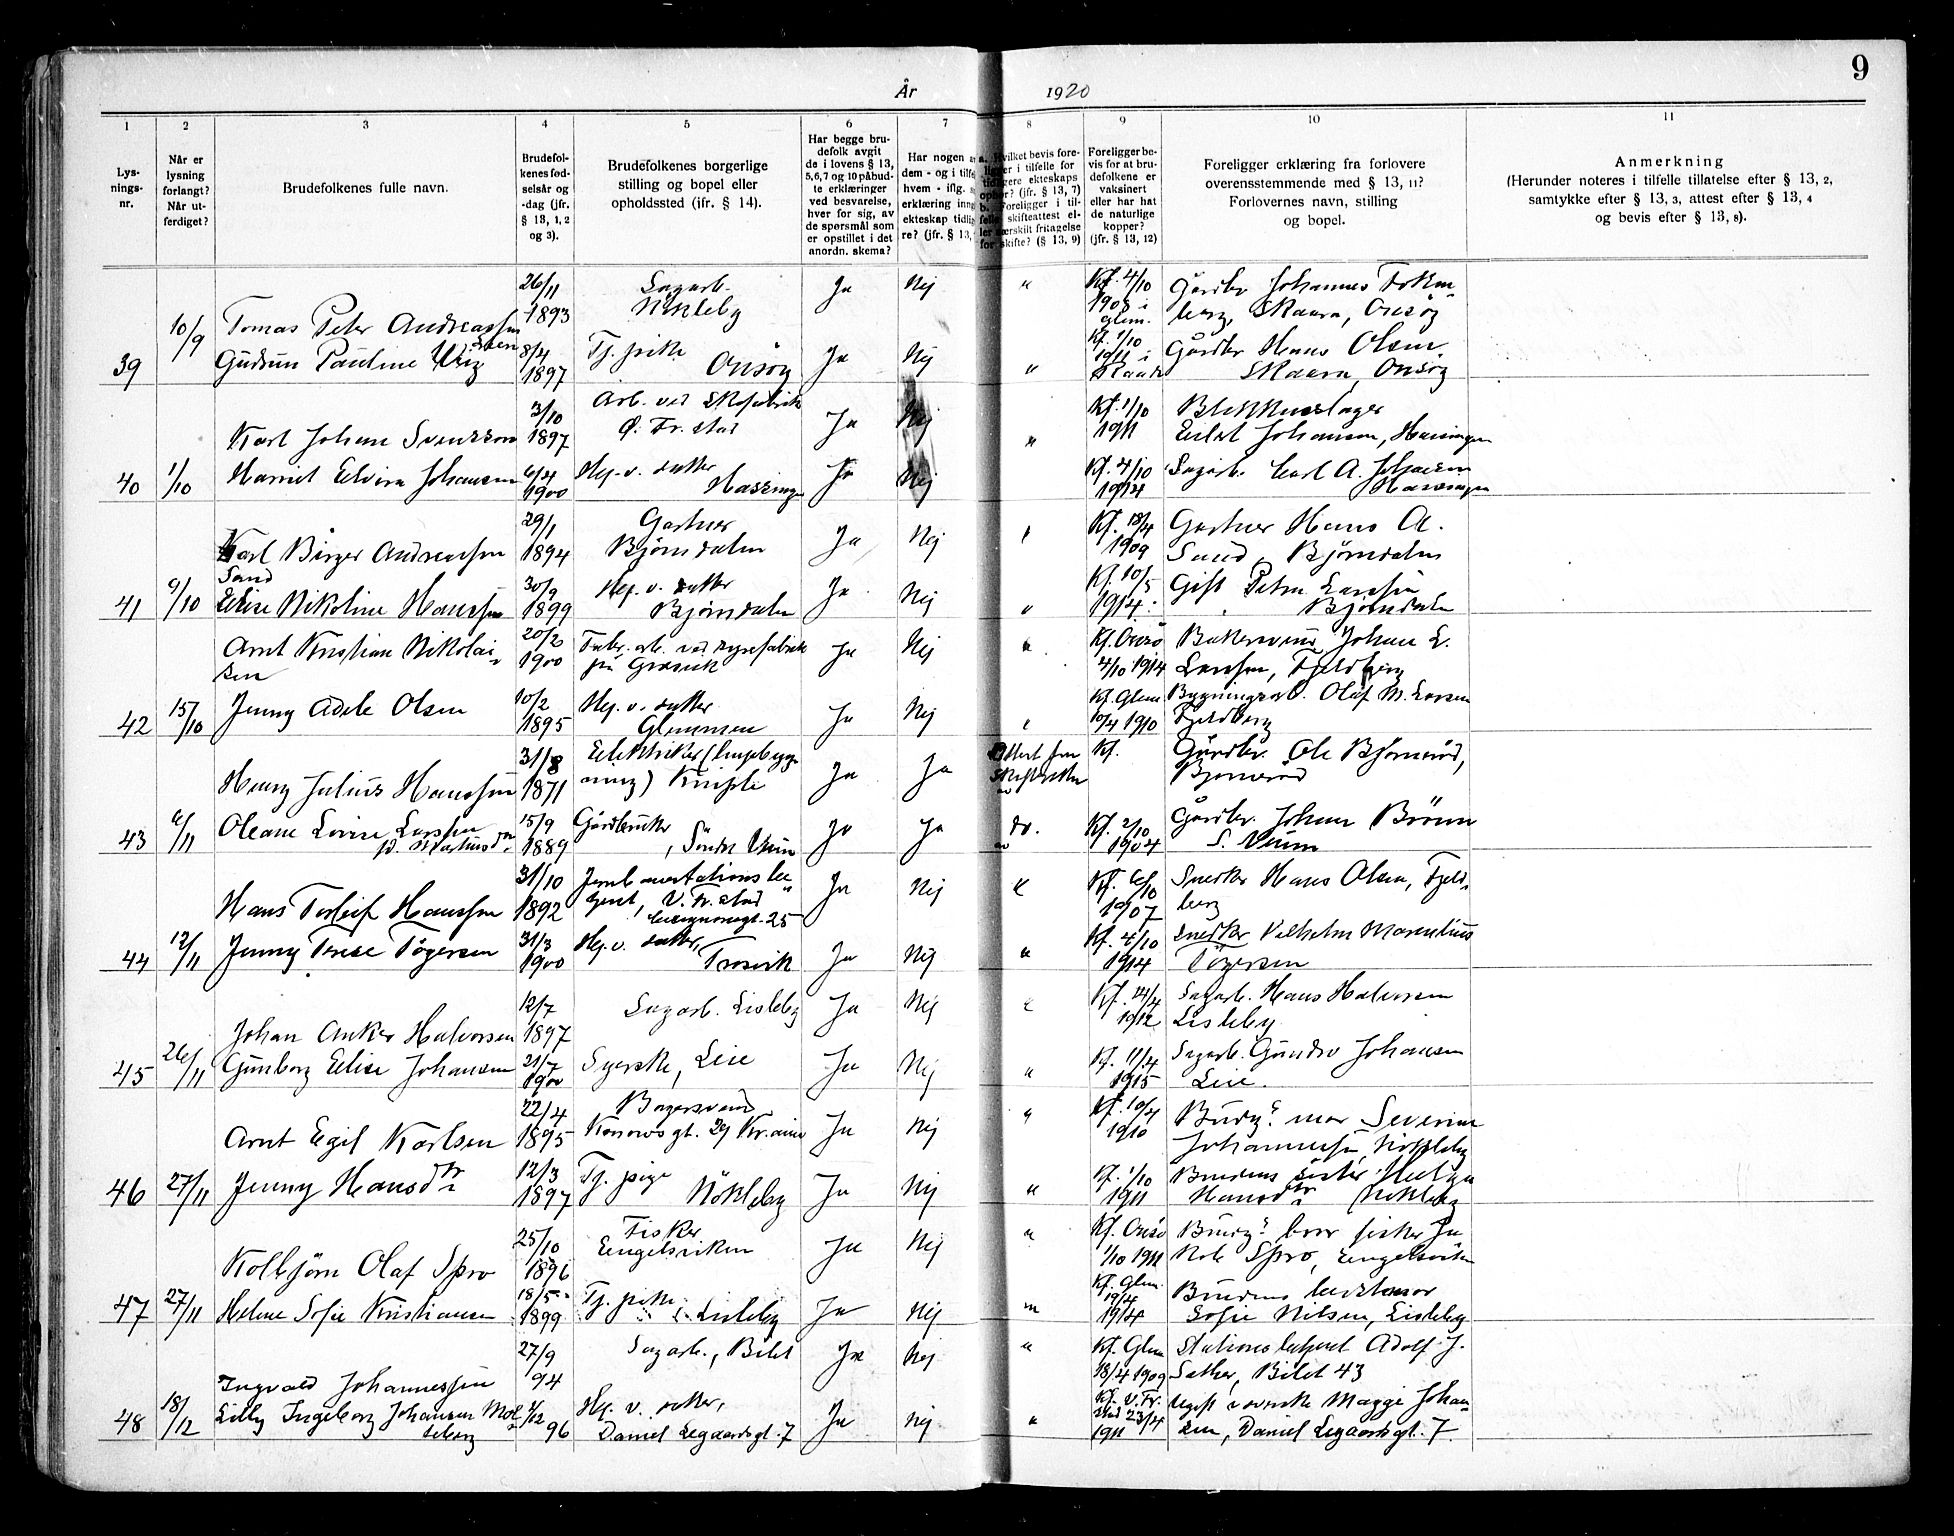 9
År 1920
1 2 3 4 5 6 7 8 9 10 11
Lys-
nings-
nr.
Når er
lysning
forlangt?
Når ut-
ferdiget?
Brudefolkenes fulle navn.
Brudefol-
kenes fød-
selsår og
-dag (jfr.
§ 13, 1, 2
og 3).
Brudefolkenes borgerlige
stilling og bopel eller
opholdssted (ifr. § 14).
Har begge bru-
defolk avgit
de i lovens § 13,
5,6,7 og 10 påbud-
te erklæringer
ved besvarelse,
hver for sig, av
de spørsmål som
er opstillet i det
anordn. skema?
Har nogen a
dem - og i tilf
hvem - iflg.
erklæring inng
ekteskap tidlig
re? (jfr. § 13,
Hvilket bevis fore-
ligger i tilfelle for
tidligere ekteskaps
ophør? (jfr. § 13, 7)
b. Foreligger i til-
felle skifteattest el-
ler særskilt fritagelse
for skifte? (§ 13, 9)
Foreligger be-
vis for at bru-
defolkene er
vaksinert
eller har hat
de naturlige
kopper?
(jfr. § 13, 12)
Foreligger erklæring fra forlovere
overensstemmende med § 13, 11?
Forlovernes navn, stilling
og bopel.
Anmerkning
(Herunder noteres i tilfelle tillatelse efter § 13, 2,
samtykke efter § 13, 3, attest efter § 13, 4
og bevis efter § 13, 8).
Tomas Peter Andreassen 26/11 1893 Sagarb. Nökleby Ja Nej " Kf. 4/10 1908 i Glem. Gårdbr Johannes Torken-
berg, Skaara, Onsöy
39 10/9 Gudrun Pauline 8/4 1897 Tj. pike Onsöy Ja Nej " Kf. 1/10 1911 i Raade Gårdbr Hans Olsen
Skaara, Onsöy
Karl Johan Svensson 3/10 1897 Arb. ved Skofabrik Ö. Fr.stad Ja Nej " Kf. 1/10 1911 Blikkenslager
Johansen, Hassingen
40 1/10 Harriet Elvira Johansen 6/4 1900 Hj. v. datter Hassingen Ja Nej Kf. 4/10 1914 Sagarb. Carl A. Johansen
Hassingen
Karl Birger Andreassen
Sand 29/1 1894 Gartner Björndalen Ja Nej " Kf. 18/4 1909 Gartner Hans A.
Sand, Björndalen
41 9/10 Elise Nikoline Hanssen 30/9 1899 Hj. v. datter Björndalen Ja Nej " Kf. 10/5 1914 Gift Petra Larssen
Björndalen
Arnt Kristian Nikolai-
sen 20/2 1900 Fabr. arb. ved syrefabrik
på Gressvik Ja Nej " Kf. Onsö 4/10 1914 Bakersvend Johan L.
Larssen, Fjeldberg
42 15/10 Jenny Adele Olsen 10/2 1895 Hj. v. datter Glemmen Ja Nej " Kf. Glem 10/4 1910 Bygningsarb. Olaf M. Larsen
Fjeldberg
Henry Julius Hanssen 31/8 1871 Elektriker (
) Kniple Ja Ja Attest fra
Skifteretten Kf. Gårdbr. Ole Bjørneröd,
Bjørneröd
43 6/11 Oleane Lovise Larssen
f. Martinsdtr. 15/9 1889 Gårdbruker, Söndre Ja Ja do. Kf. 2/10 1904 Gårdbr. Johan
S.
Hans Torleif Hanssen 31/10 1892 Jernbanestationsbe-
tjent, V. Fr.stad
25 Ja Nej " Kf. 6/10 1907 Snekker Hans Olsen, Fjeld-
berg
44 12/11 Jenny Terese Tögersen 31/3 1900 Hj. v. datter, Trosvik Ja Nej " Kf. 4/10 1914 Snekker Vilhelm Marentius
Tögersen
Johan Anker Halvorsen 12/7 1897 Sagarb. Lisleby Ja Nej " Kf. 14/4 1912 Sagarb. Hans Halvorsen
Lisleby
45 26/11 Gunborg Elise Johansen 21/7 1900 Syerske, Lie Ja Nej " Kf. 11/4 1915 Sagarb. Johansen
Lie.
Arnt Egil Karlsen 22/4 1895 Bagersvend
Konowsgt. 29 Kr.ania Ja Nej " Kf. 10/4 1910 Brudg.s mor Severine
Johannessen, Nökleby
46 27/11 Jenny Hansdtr. 12/3 1897 Tj. pige Nökleby Ja Nej " Kf. 1/10 1911 Brudens söster Helga
Hansdtr. Nökleby
Kolbjörn Olaf Spro 25/10 1896 Fisker
Engelsviken Ja Nej " Kf. Onsö 1/10 1911 Brudg.s bror fisker Ja-
kob Spro, Engelsviken
47 27/11 Helene Sofie Kristiansen 18/5 1899 Tj. pike Lisleby Ja Nej " Kf. Glem. 19/4 1914 Brudens bestemor
Sofie Nilsen, Lisleby
Ingvald Johannessen 27/9 94 Sagarb., Bilet Ja Nej " Kf. Glem 18/4 1909 Stationsbetjent Adolf J.
Sæther, Bilet 43
48 18/12 Lilly Ingeborg Johansen 1/12 96 Hj. v. datter,
Daniel Leganrdsgt. 7 Ja Nej " Kf. V. Fr.
stad 23/4 1911 Ugift Magge Johan-
sen, Daniel Leganrdsgt. 7.